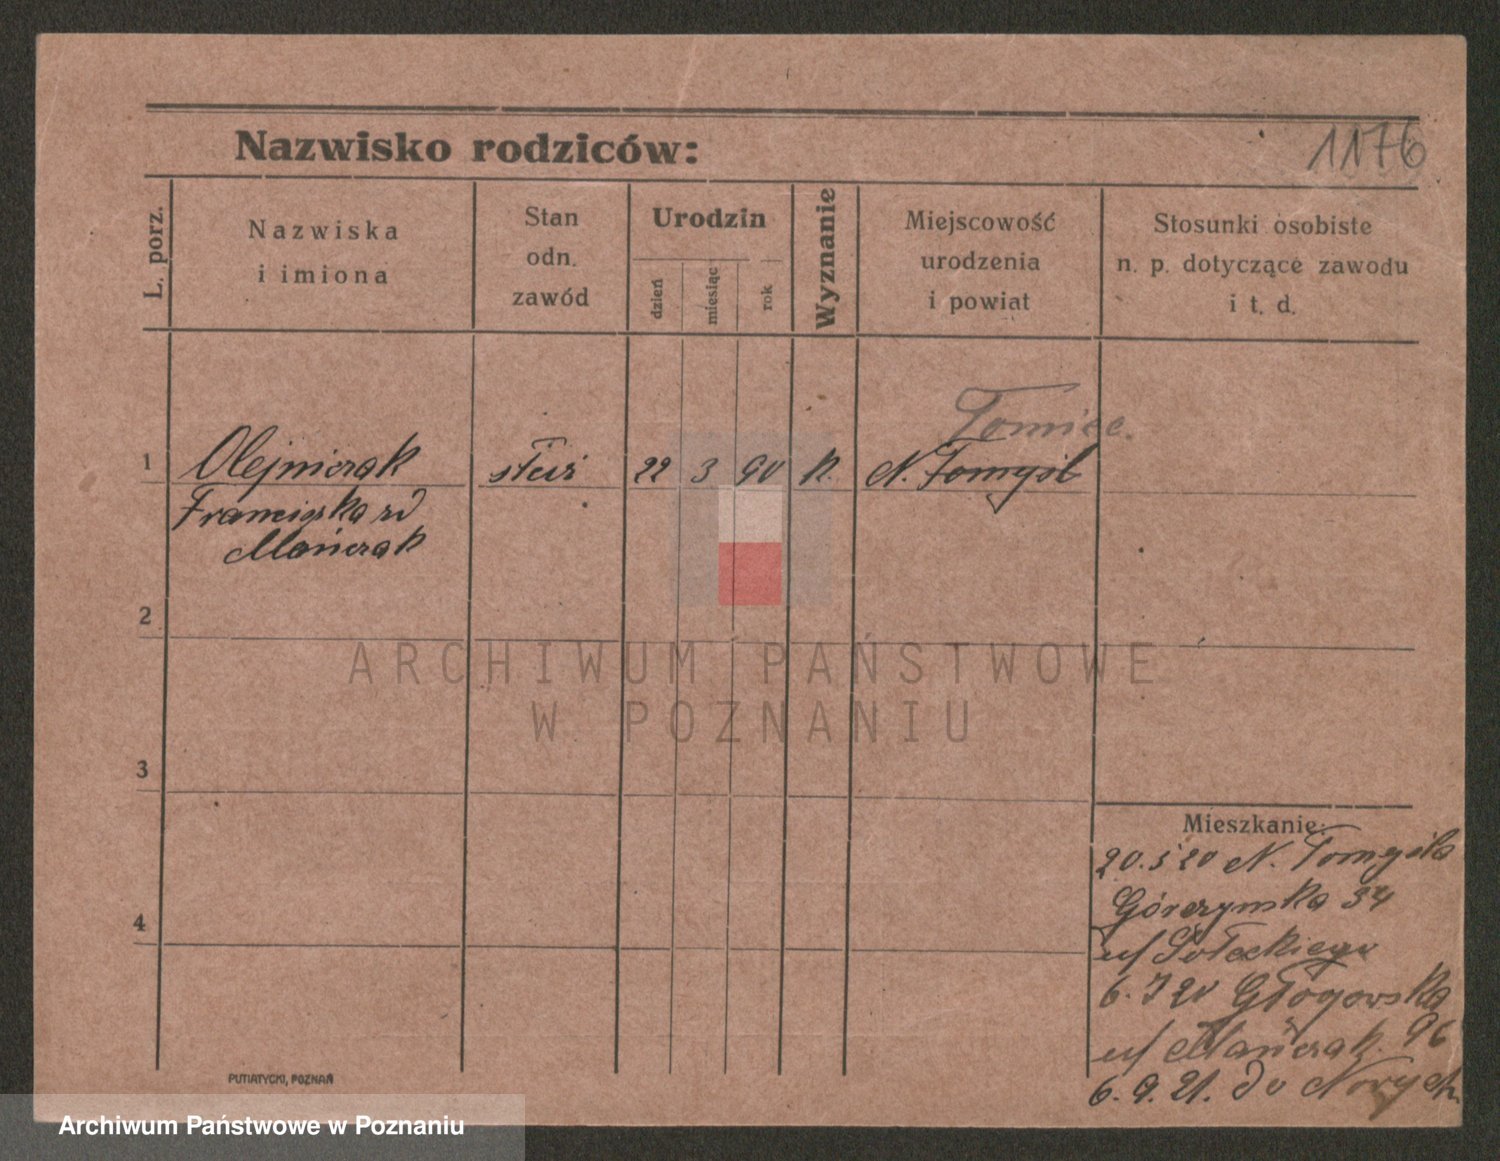 1176
Nazwisko rodziców:
L. porz.
Nazwiska
i imiona
Stan
odn.
zawód
Urodzin
dzień
miesiąc
rok
Wyznanie
Miejscowość
urodzenia
i powiat
Stosunki osobiste
n. p. dotyczące zawodu
i t. d.
Tomice.
1 Olejniczak służ 22 3 90 k. N. Tomyśl
Franciszka
Mańczak
2
ARCHIWUM PAŃSTWOWE
W POZNANIU
3
Mieszkanie:
20.5 20 N. Tomyśla
Górczyńska 34
4
u/ Sołeckiego
6. 7 20 Głogowska
u/ Mańczak. 96
6. 9. 21. do
PUTIATYCKI, POZNAŃ
Archiwum Państwowe w Poznaniu